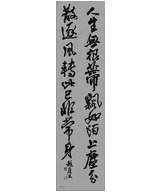 人生無根蒂飄如陌上塵分
散逐風轉此已非常身